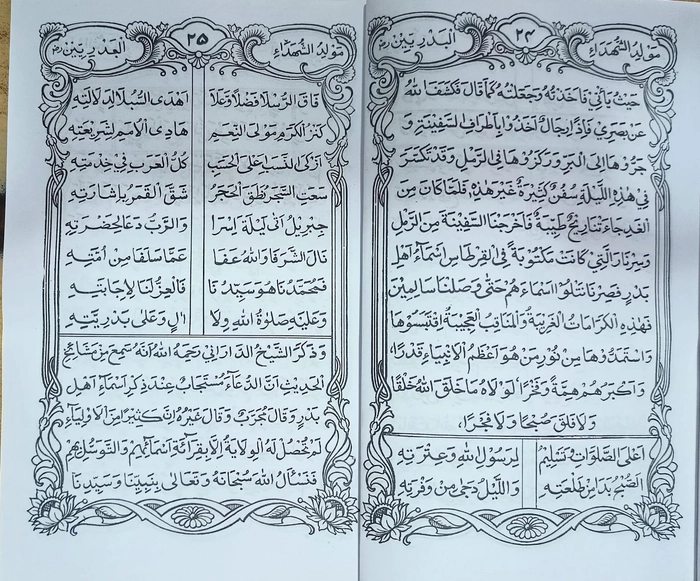 مولد الشهداء ٢٤ البدريين رض
حيث يأتي فاخذته وجعلته كما قال فكشف الله
عن بصري فاذا رجال اخذوا بأطراف السفينة و
جروها الى البر وركزوها في الرمل وقد تكسر
في هذه الليلة سفن كثيرة غير هذه فلما كان من
الغد جاءتنا ريح طيبة فأخرجنا السفينة من الرمل
وسرنا والتي كانت مكتوبة في القرطاس اسماء اهل
بدر فصرنا نتلوا اسماءهم حتى وصلنا سالمين
فهذه الكرامات الغريبة والمناقب العجيبة اقتبسوها
واستمدوها من نور من هو اعظم الانبياء قدرا،
واكبرهم همة وفخرا، لولاه ما خلق الله خلقا
ولا فلق صبحا ولا فخرا،
اعلى الصلوات وتسليم لرسول الله وعترته
الصبح بدا من طلعته والليل دجى من وفرته
مولد الشهداء ٢٥ البدريين رض
فاق الرسلا فضلا وعلا اهدى السبلا لدلالته
كنز الكرم مولى النعم هادي الامم لشريعته
ازكى النسب اعلى الحسب كل العرب في خدمته
سعت الشجر نطق الحجر شق القمر باشارته
جبريل اتى ليلة اسرا والرب دعا لحضرته
نال الشرفا والله عفا عما سلفا من امته
فمحمدنا هو سيدنا فالعز لنا لاجابته
وعليه صلوة الله ولا ال وعلى بدريته
وذكر الشيخ الداراني رحمه الله انه سمع من مشائخ
الحديث ان الدعاء مستجاب عند ذكر اسماء اهل
بدر وقال مجرب وقال غيره ان كثيرا من الاولياء
لم تحصل له الولاية الا بقراءة اسمائهم والتوسل بهم
فنسأل الله سبحانه وتعالى بنبينا وسيدنا